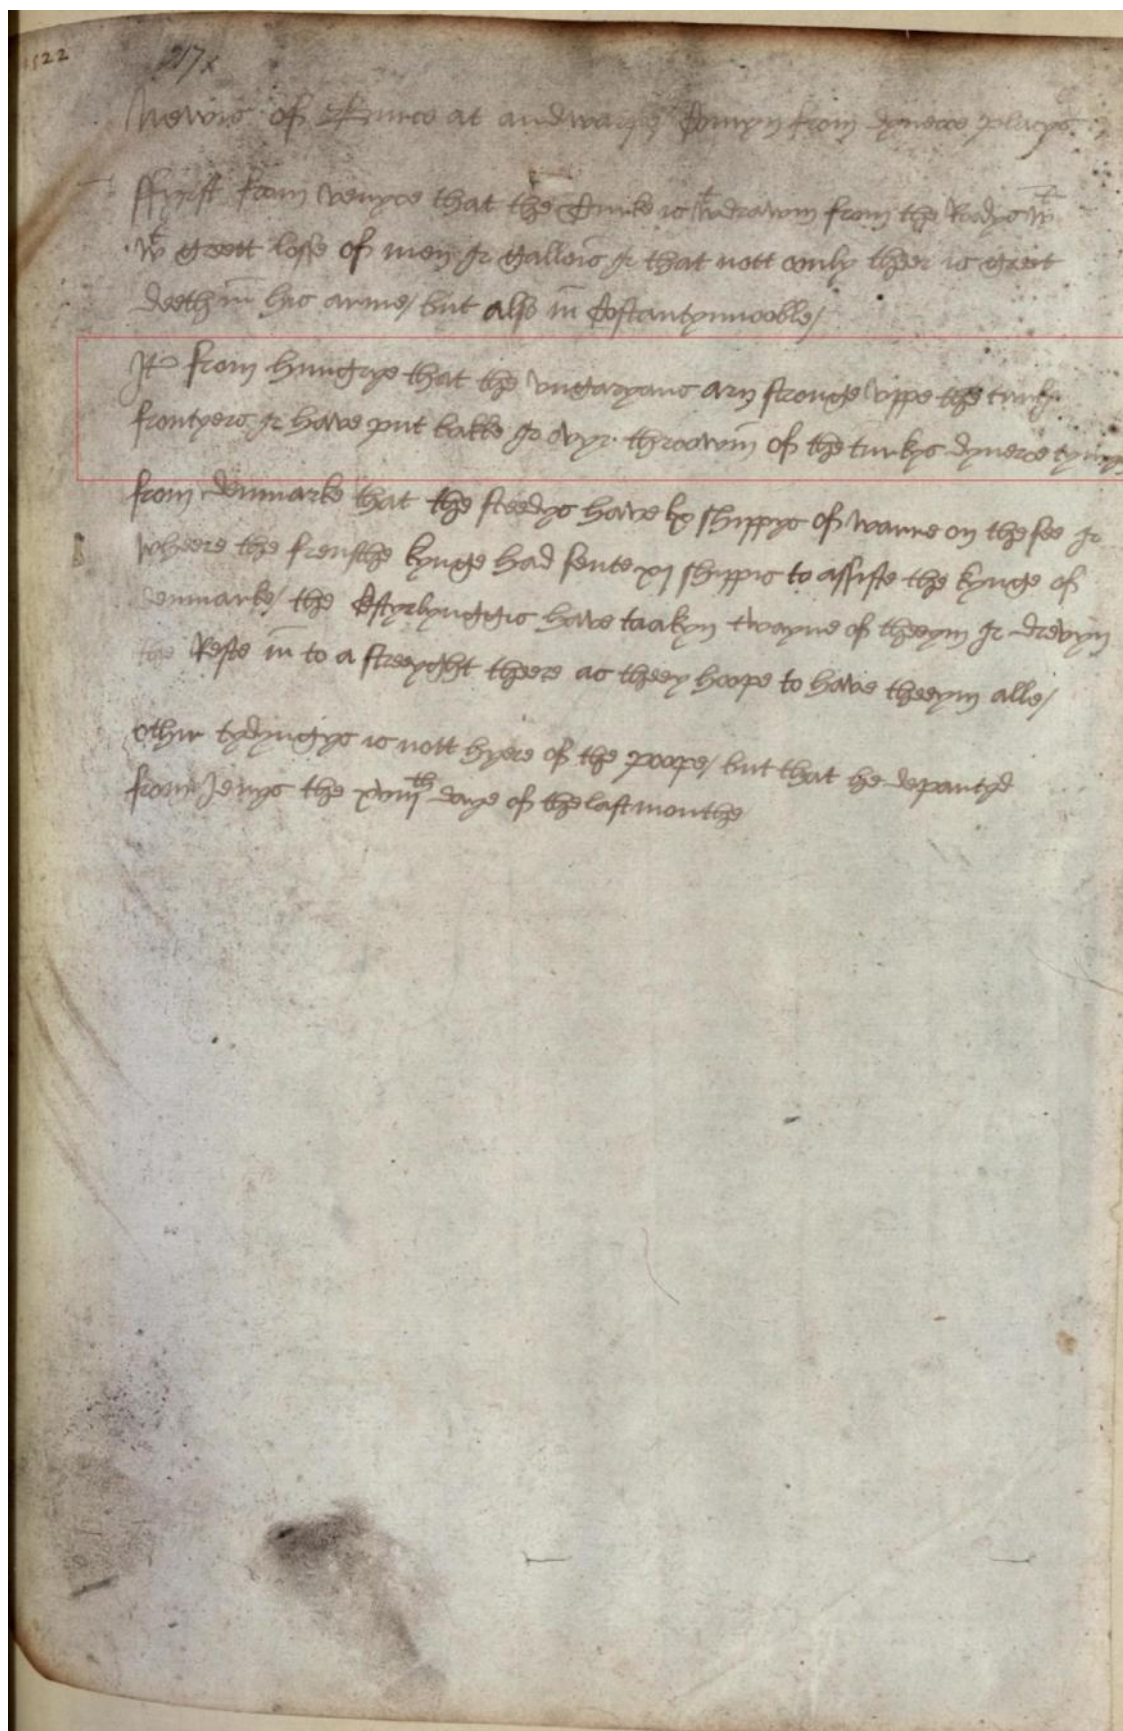 1522
217x
Newis of Burce at andwarpe Comyn from dyverce placys
ffyrst from venyce that the Turke is wtdrawin from the Roodys wt
wt greett losse of men & galleis & that nott oonly theer is greet
deeth in his arme/ but also in Costantynnooble/
It from hungrye that the vngaryans arn stronge vppe the turkys
frontyers & have put bakke & ovyr throowin of the turkys dyverce tymys
from denmarke that the steedys have lx shippys of warre on the see &
wheere the frensche kynge had sente xj shippis to assiste the kynge of
denmarke/ the Estyrlynggis have taakyn twayne of theeym & drevyn
the Reste in to a streeyght theere as theey hoope to have theeym alle/
othir tydyngys is nott hyere of the poope/ but that he departyd
from Jenys the xviijth daye of the last monthe